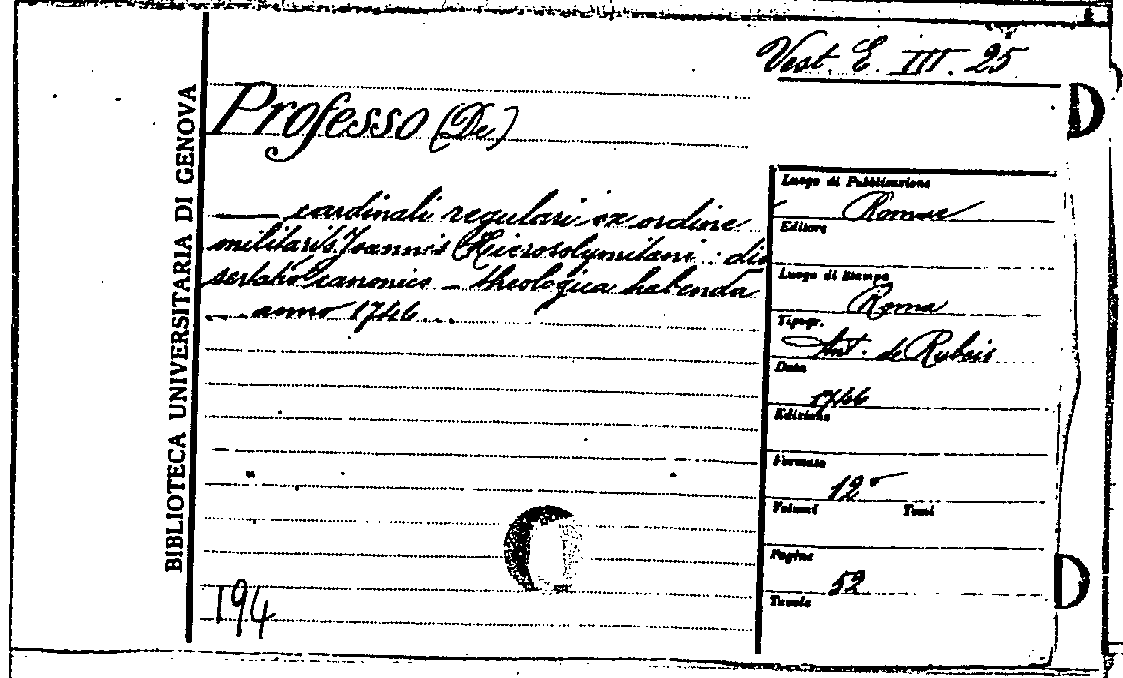 Vest. E. III. 25
BIBLIOTECA UNIVERSITARIA DI GENOVA
Professo (De)
— cardinali regulari ex ordine
militari S. Joannis Hierosolymitani : dis
sertatio canonico - theologica habenda
— anno 1746...
194
Luogo di Pubblicazione
Romae
Editore
Luogo di Stampa
Roma
Tipogr.
Ant. de Rubeis
Data
1746
Edizione
Formato
12°
Volumi Tomi
Pagine
52
Tavole